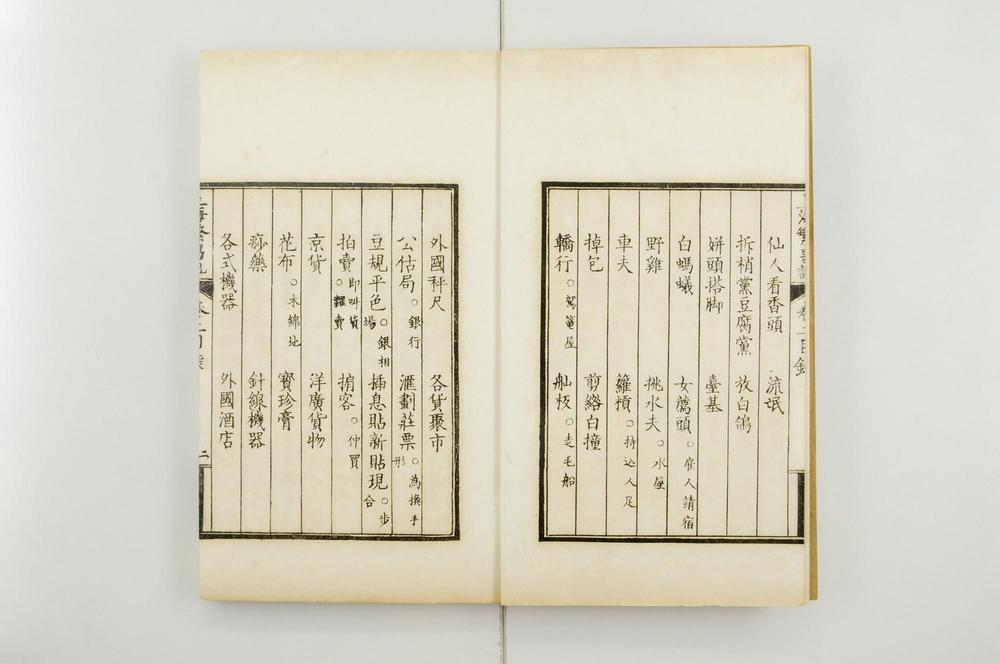 仙人看香頭 流氓
拆梢黨豆腐黨 放白鴿
姘頭搭脚 臺基
白螞蟻 女薦頭。雇人請宿
野雞 挑水夫。水屋
車夫 籮槓。持込人足
掉包 剪綹白撞
轎行。駕篭屋 舢板。走毛船
外國秤尺 各貨聚市
公估局。銀行 滙劃莊票。為換手形
豆規平色。銀相場 插息貼新貼現。步合
拍賣。即叫貨糶賣 掮客。仲買
京貨 洋廣貨物
花布。木綿地 寶珍膏
痧藥 針線機器
各式機器 外國酒店
二